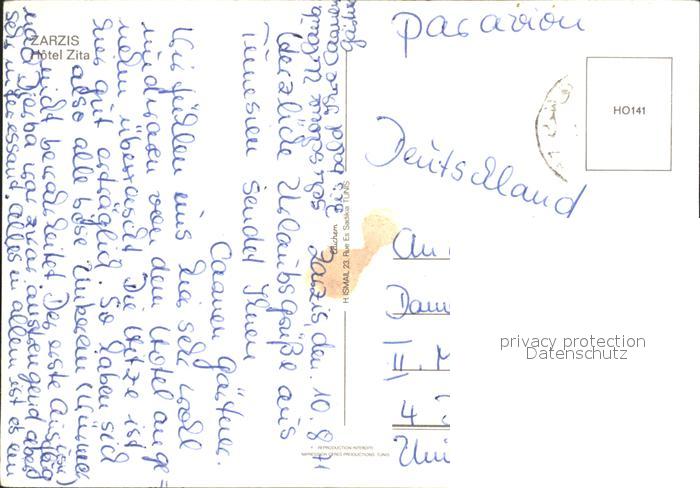 ZARZIS
Hôtel Zita
par avion
HO141
Deutschland
An
II. M
4
H. ISMAIL 23, Rue Es Sadikia TUNIS
REPRODUCTION INTERDITE
Zarzis, den 10. 8. 71
Herzliche Urlaubsgrüße aus
Tunesien sendet Ihnen
Carmen Gärtner.
Wir fühlen uns hier sehr wohl
und waren von dem Hotel ange=
nehm überrascht. Die Hitze ist
hier gut erträglich. So haben sich
also alle böse Unkereien
nicht bewahrheitet. Der erste Ausflug
nach Djerba war zwar anstrengend aber
sehr interessant. alles in allem ist es ein
Ihre Carmen
Gärtner
privacy protection
Datenschutz